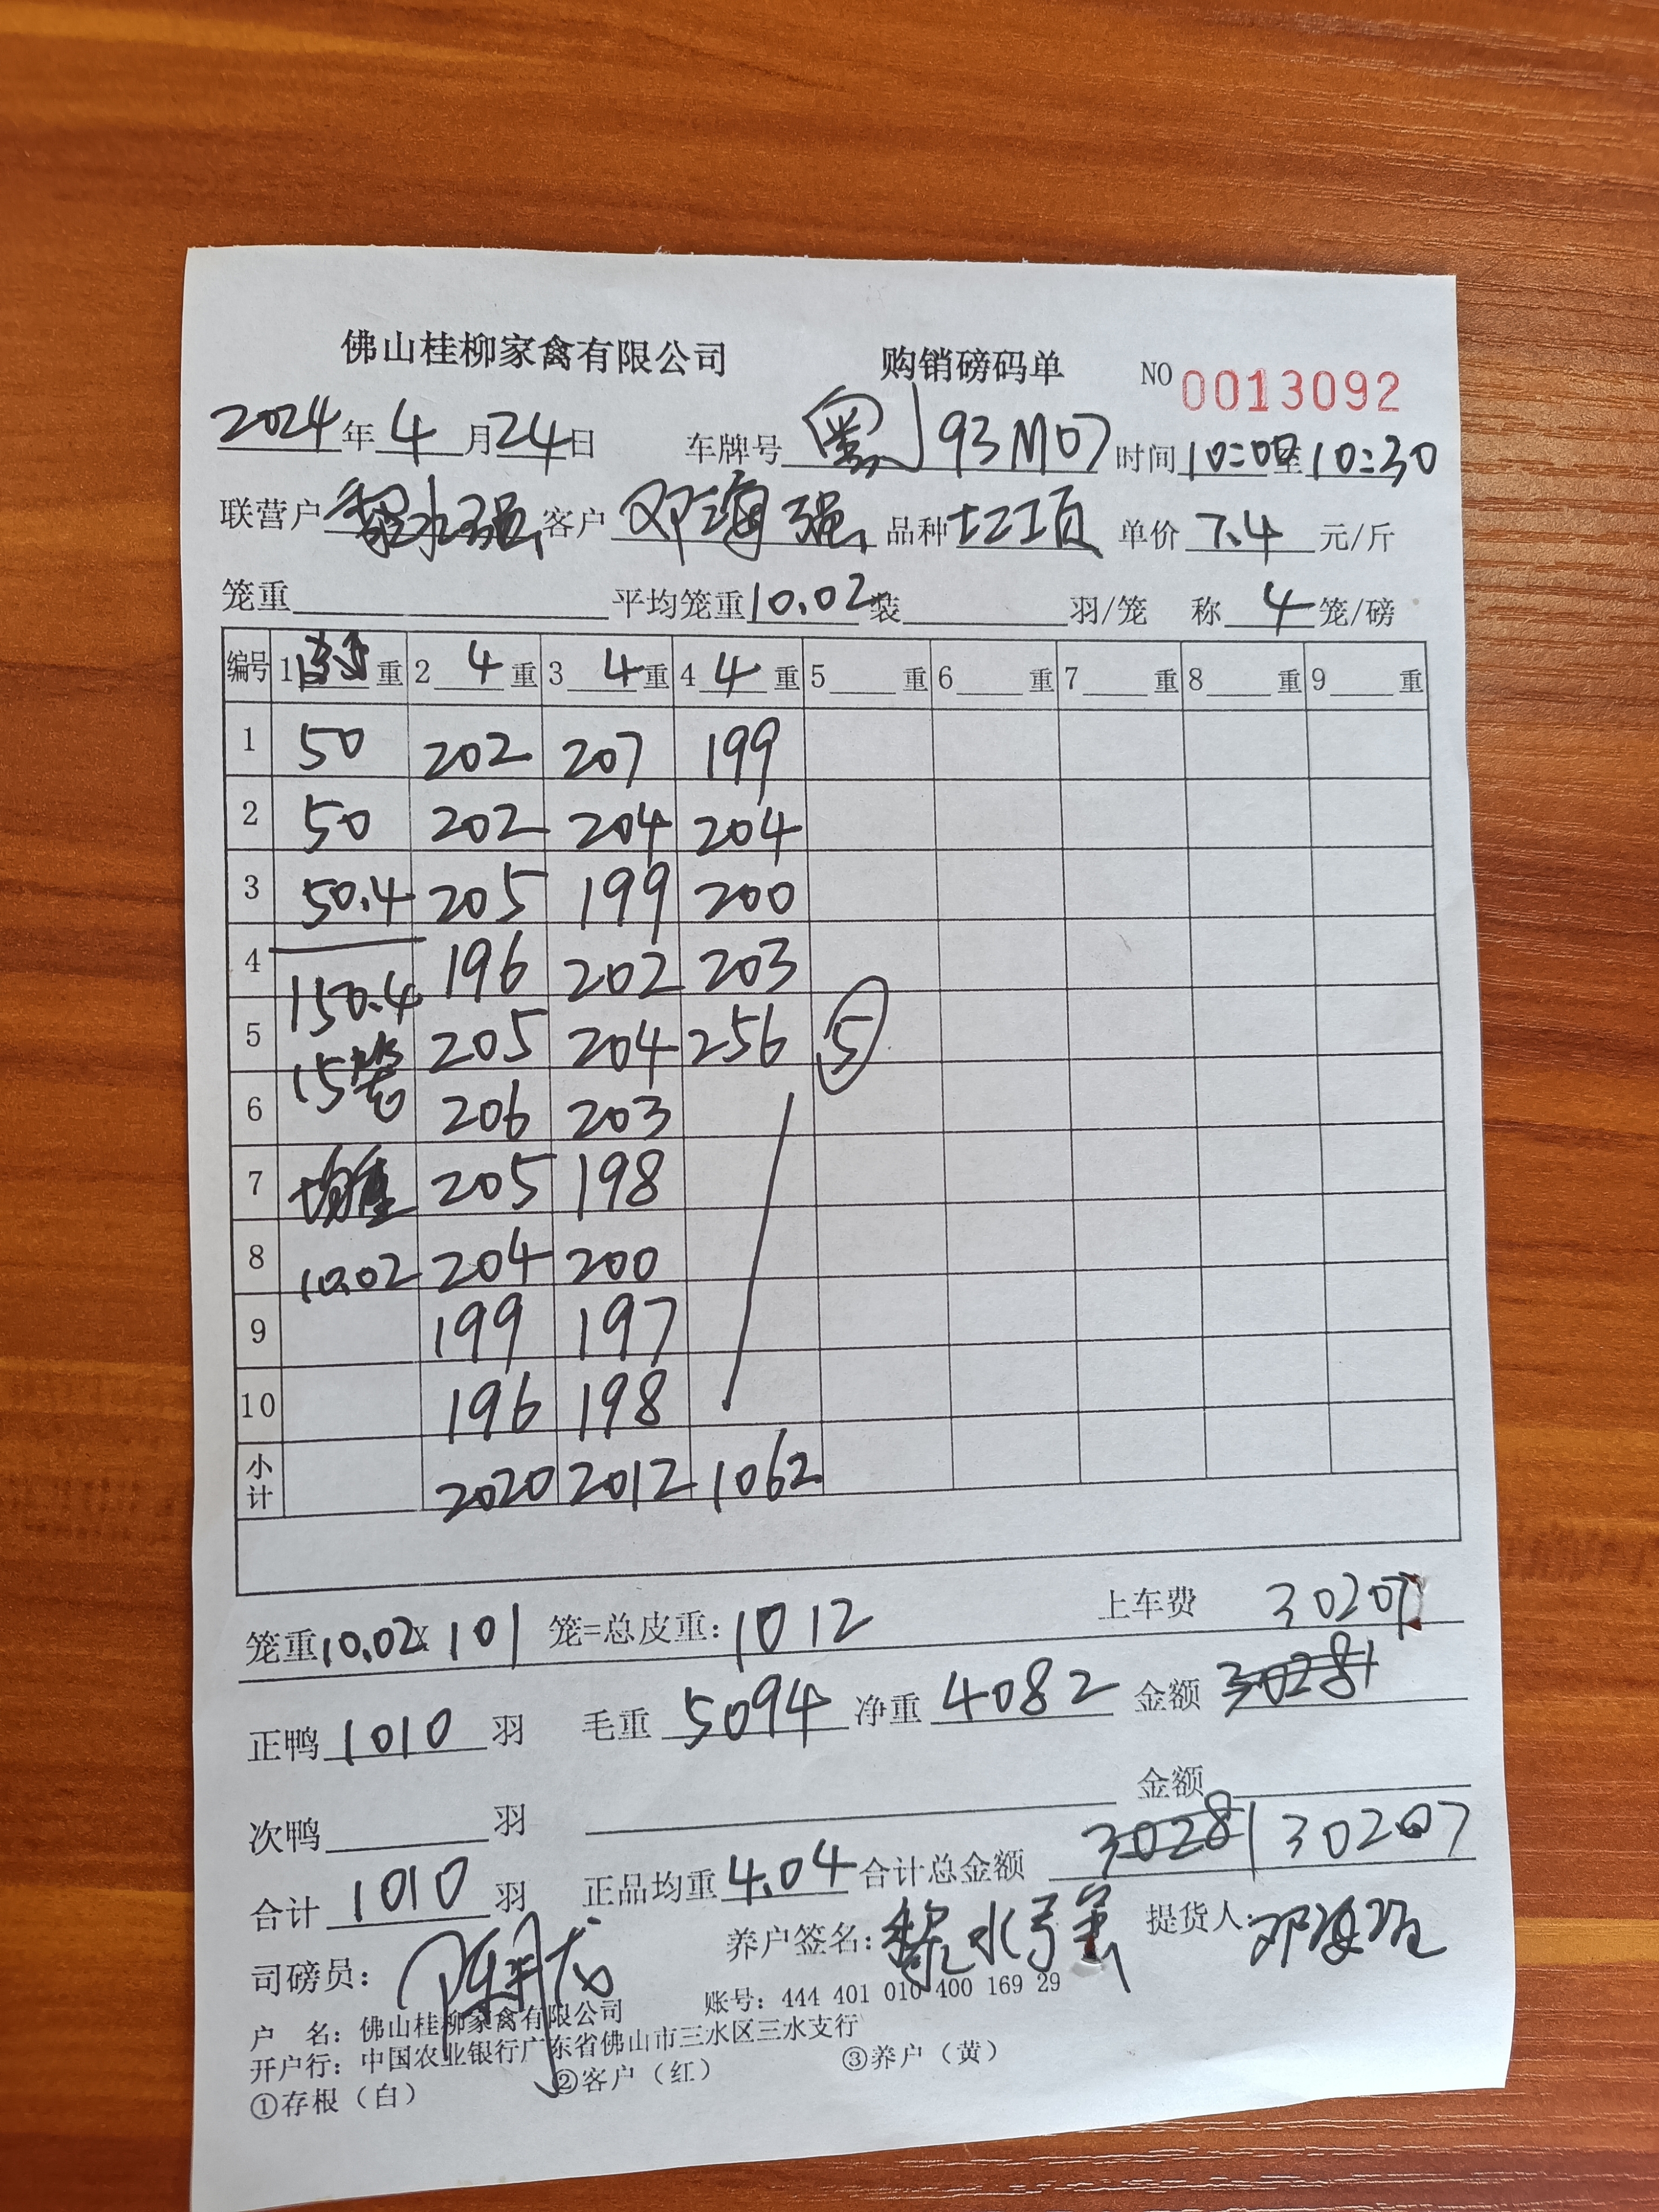 佛山桂柳家禽有限公司 购销磅码单 NO 0013092
2024年 4 月 24 日 车牌号 粤J 93M07 时间 10:00至10:30
联营户 黎水强 客户 邓海强 品种 土工项 单价 7.4 元/斤
笼重 平均笼重 10.02 装 羽/笼 称 4 笼/磅
编号 1 重 2 4 重 3 4 重 4 4 重 5 重 6 重 7 重 8 重 9 重
1 50 202 207 199
2 50 202 204 204
3 50.4 205 199 200
4 150.4 196 202 203
5 15笼 205 204 256 ⑤
6 206 203
7 均重 205 198
8 10.02 204 200
9 199 197
10 196 198
小计 2020 2012 1062
笼重 10.02 x 101 笼=总皮重: 1012 上车费 30207
正鸭 1010 羽 毛重 5094 净重 4082 金额 30281
次鸭 羽 金额
合计 1010 羽 正品均重 4.04 合计总金额 30281 30207
司磅员: 养户签名: 黎水强 提货人: 邓海强
户 名: 佛山桂柳家禽有限公司 账号: 444 401 010 400 169 29
开户行: 中国农业银行广东省佛山市三水区三水支行
①存根（白） ②客户（红） ③养户（黄）